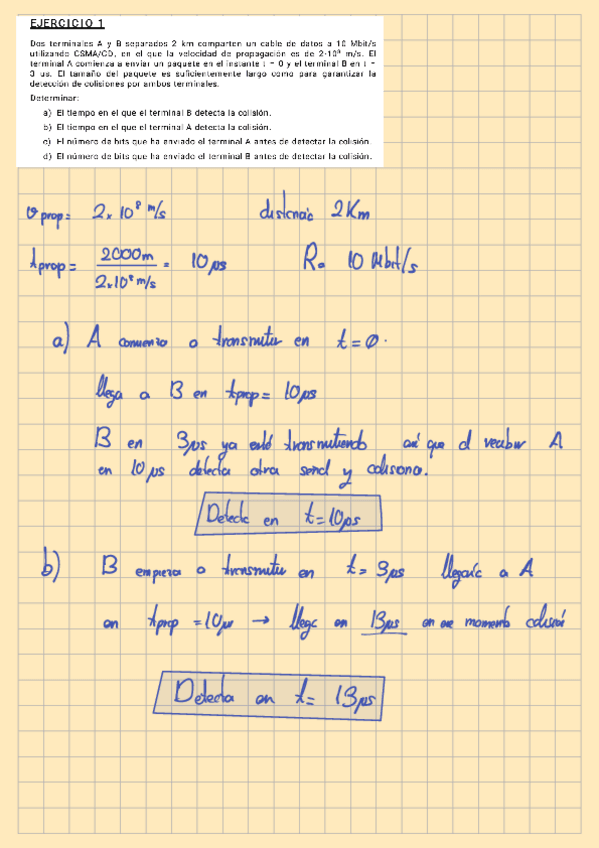 EJERCICIO 1
Dos terminales A y B separados 2 km comparten un cable de datos a 10 Mbit/s
utilizando CSMA/CD, en el que la velocidad de propagación es de 2·10⁸ m/s. El
terminal A comienza a enviar un paquete en el instante t = 0 y el terminal B en t =
3 us. El tamaño del paquete es suficientemente largo como para garantizar la
detección de colisiones por ambos terminales.
Determinar:
a) El tiempo en el que el terminal B detecta la colisión.
b) El tiempo en el que el terminal A detecta la colisión.
c) El número de bits que ha enviado el terminal A antes de detectar la colisión.
d) El número de bits que ha enviado el terminal B antes de detectar la colisión.
v prop = 2x10⁸ m/s distancia 2Km
t prop = 2000m / 2x10⁸ m/s = 10 μs R = 10 Mbit/s
a) A comienza a transmitir en t = 0.
llega a B en tprop = 10 μs
B en 3μs ya está transmitiendo así que al recibir A
en 10 μs detecta otra señal y colisiona.
Detecta en t = 10 μs
b) B empieza a transmitir en t = 3μs llegará a A
en tprop = 10μs → llega en 13μs en ese momento colisión
Detecta en t = 13μs